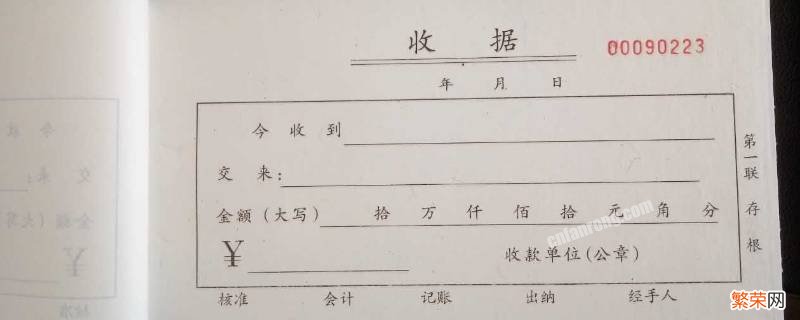 收 据 00090223
年 月 日
今 收 到
交 来：
金额（大写） 拾 万 仟 佰 拾 元 角 分
¥ 收款单位(公章)
核准 会计 记账 出纳 经手人
第一联 存根
cnfanrong.com
繁荣网